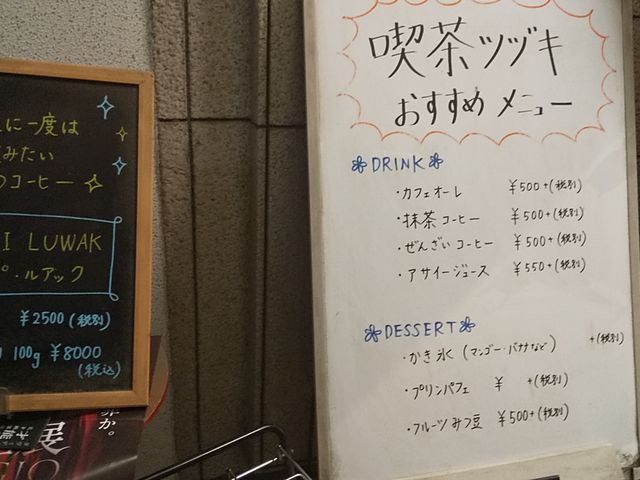 に一度は
みたい
コーヒー
I LUWAK
・ルアック
¥2500 (税別)
100g ¥8000
(税込)
か。
喫茶ツヅキ
おすすめ メニュー
DRINK
・カフェオーレ ¥500+(税別)
・抹茶コーヒー ¥500+(税別)
・ぜんざいコーヒー ¥500+(税別)
・アサイージュース ¥550+(税別)
DESSERT
・かき氷 (マンゴー・バナナなど) +(税別)
・プリンパフェ ¥ +(税別)
・フルーツみつ豆 ¥500+(税別)